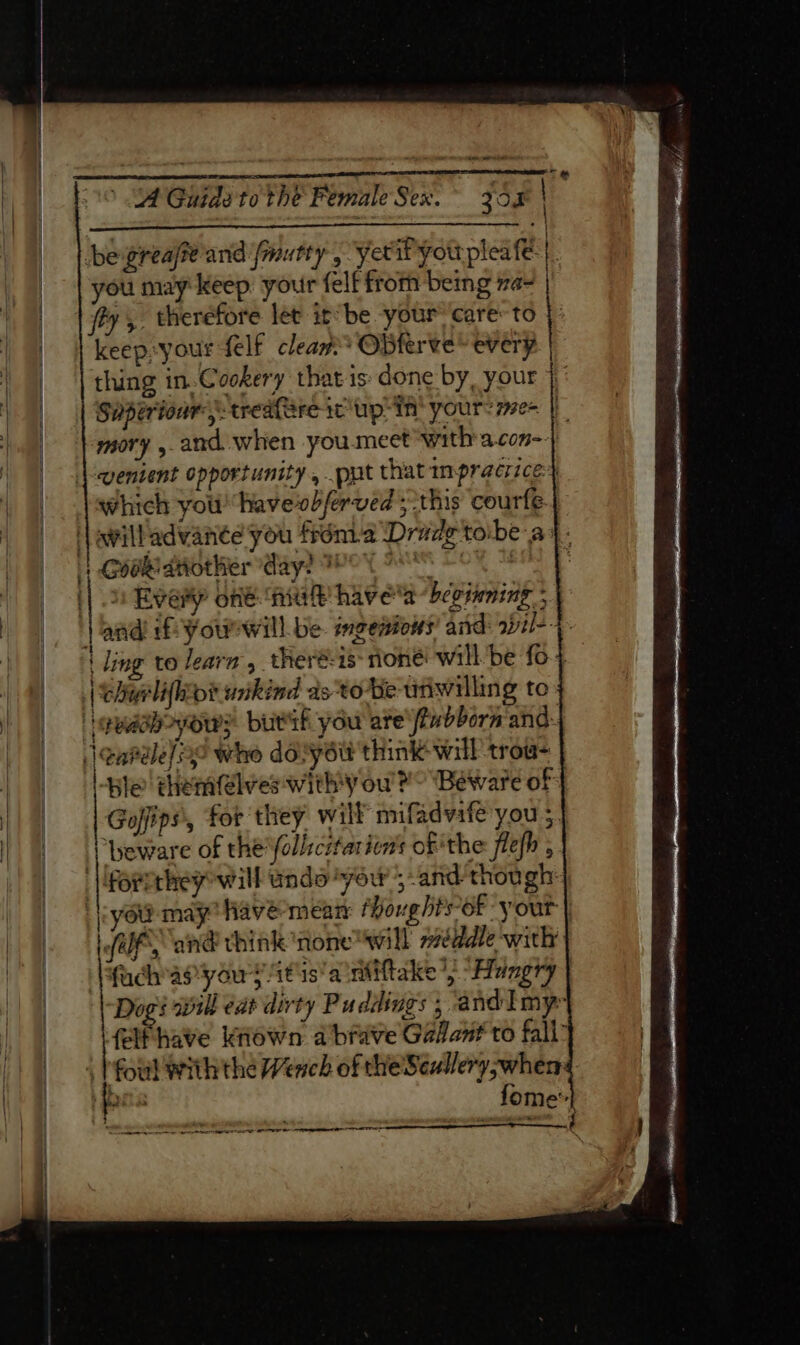 A Guide to the Female Sex. 301
be greaſie and ſmutty, yet if you pleaſe
you may keep your ſelf from being na-
ſty; therefore let it be your care to
keep your ſelf clean. Obſerve every
thing in Cookery that is done by your
Superiour, treaſure it up in your me-
mory, and when you meet with a con-
venient opportunity, put that in practice
which you have obſerved; this courſe
will advance you from a Drudg to be a
Cook another day.
Every one muſt have a beginning;
and if you will be ingenious and wil-
ling to learn, there is none will be ſo
churliſh or unkind as to be unwilling to
teach you; but if you are ſtubborn and
careleſs, who do you think will trou-
ble themſelves with you? Beware of
Goſſips, for they will miſadviſe you;
beware of the ſollicitations of the fleſh,
for they will undo you; and though
you may have mean thoughts of your
ſelf, and think none will meddle with
ſuch as you; it is a miſtake, Hungry
Dogs will eat dirty Puddings; and I my
ſelf have known a brave Gallant to fall
foul with the Wench of the Scullery, when
ſome